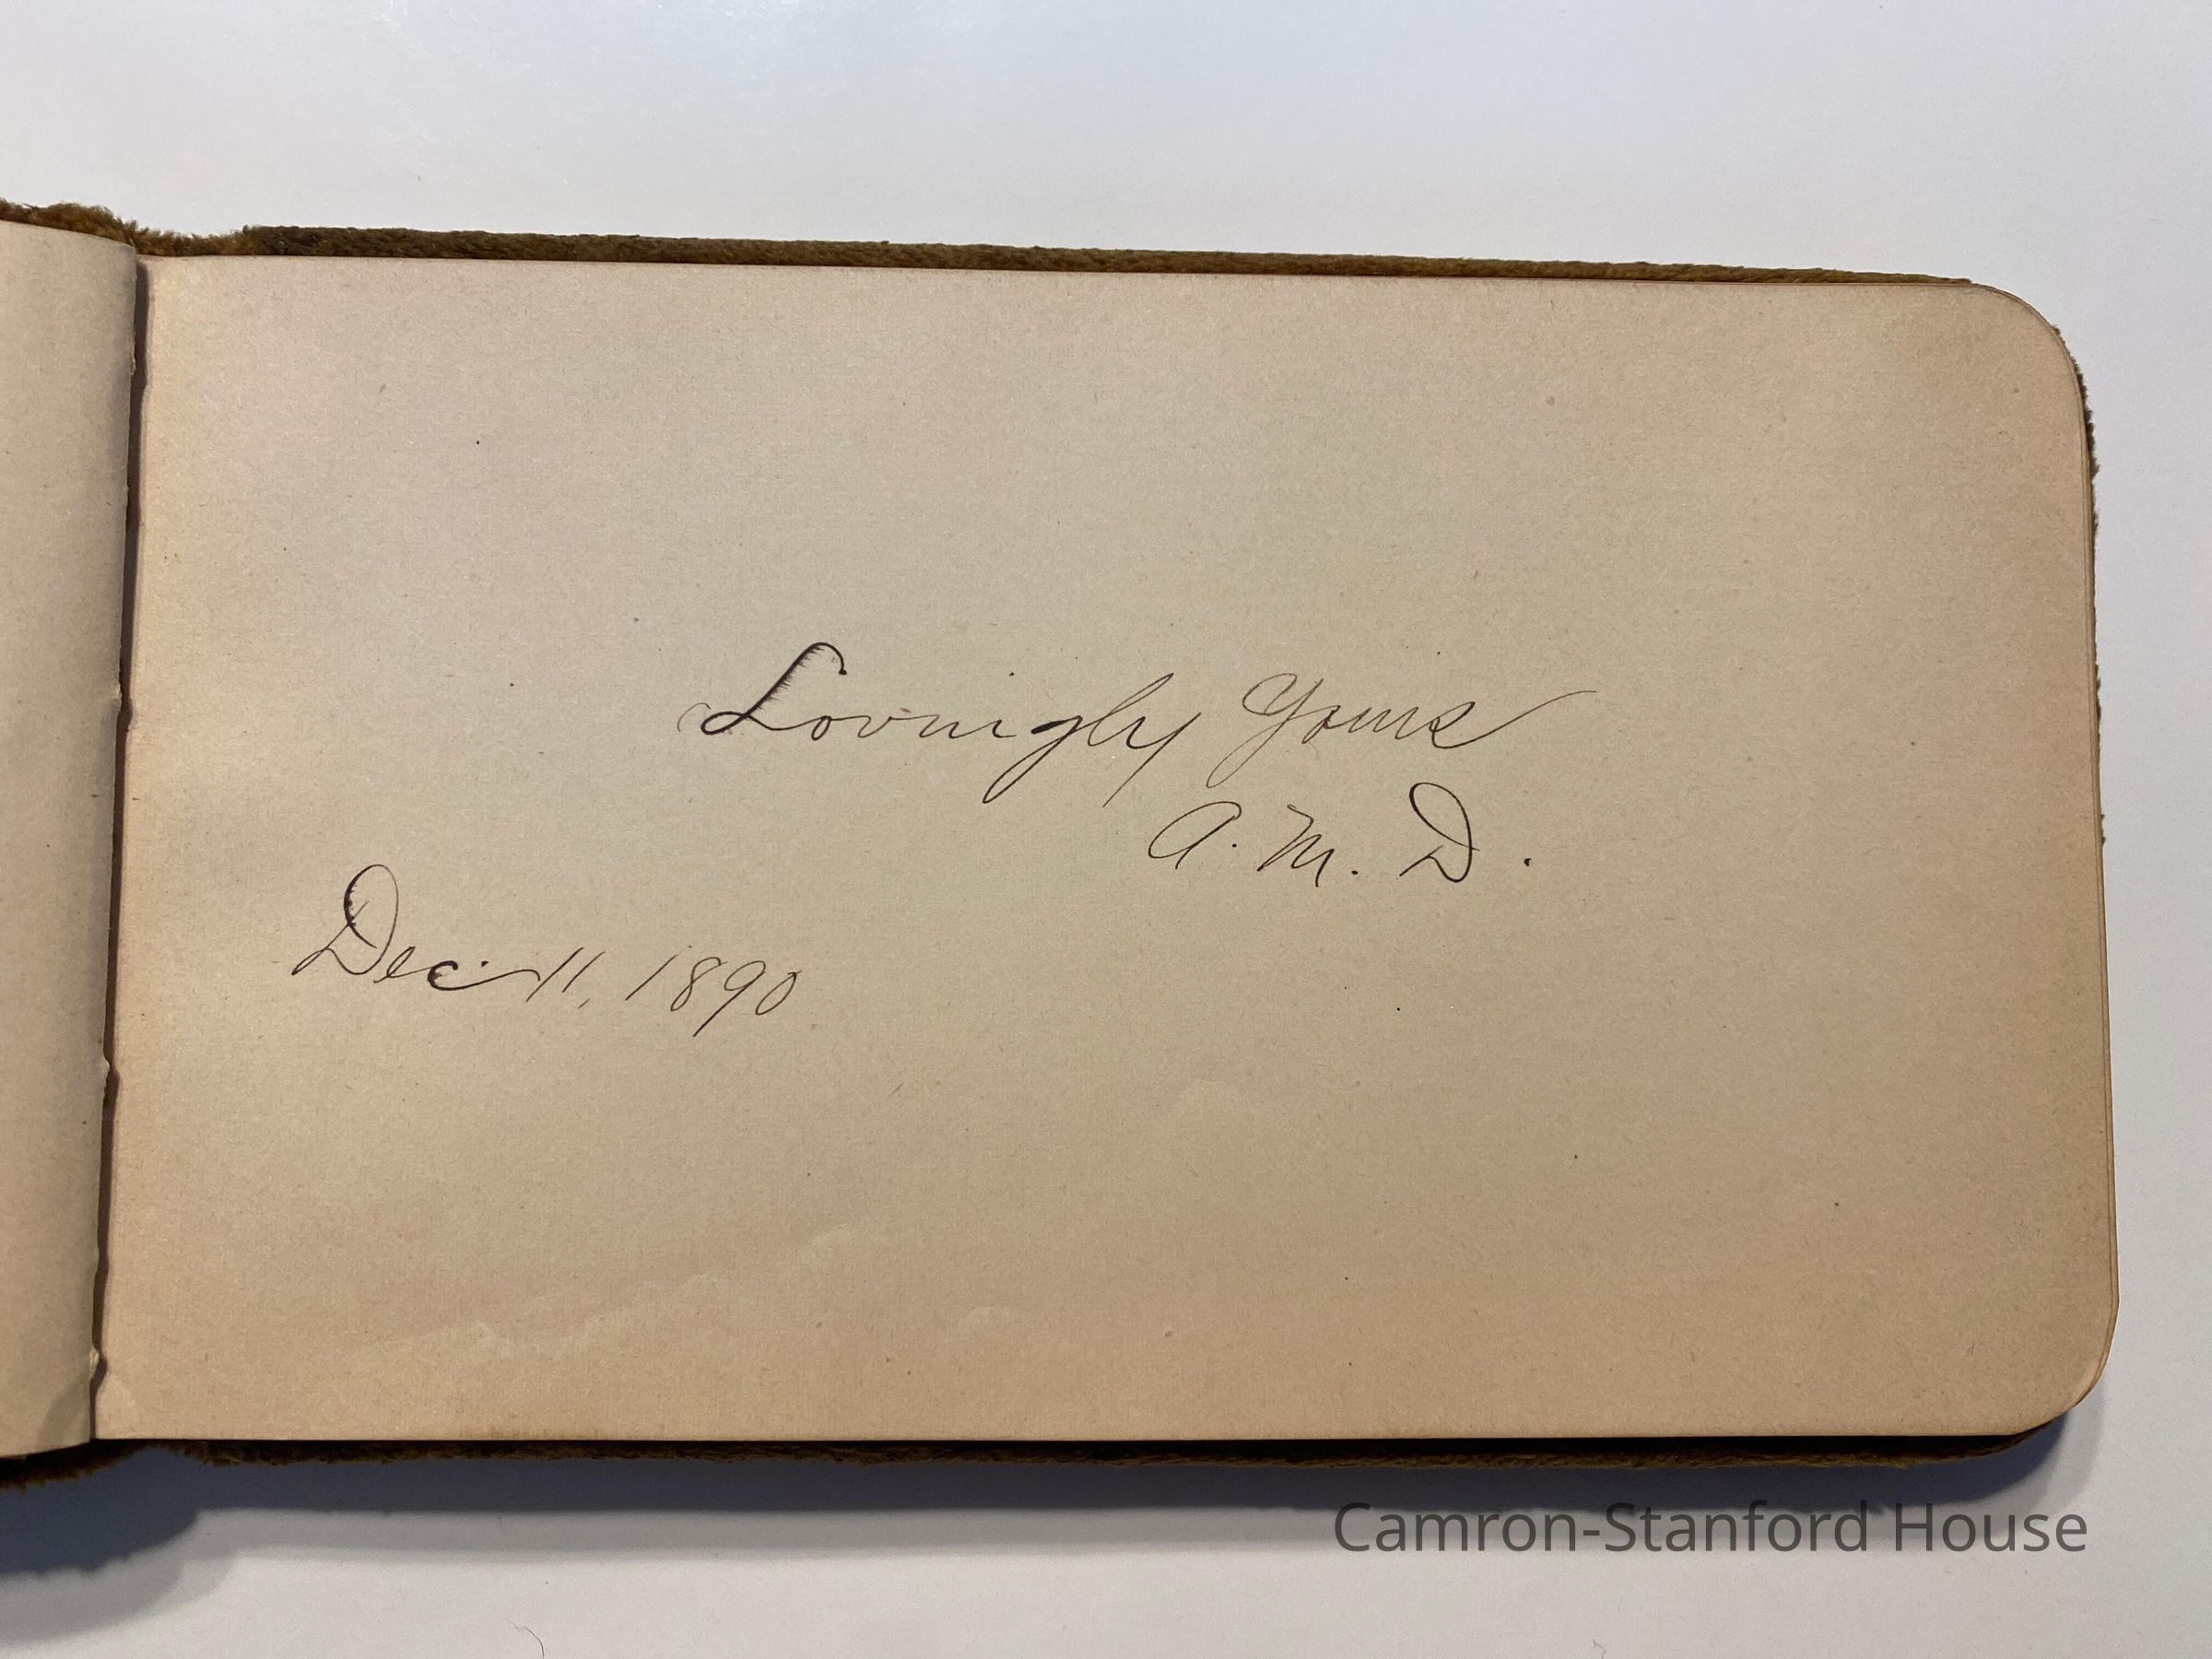 Lovingly Yours
A. M. D.
Dec. 11, 1890
Camron-Stanford House